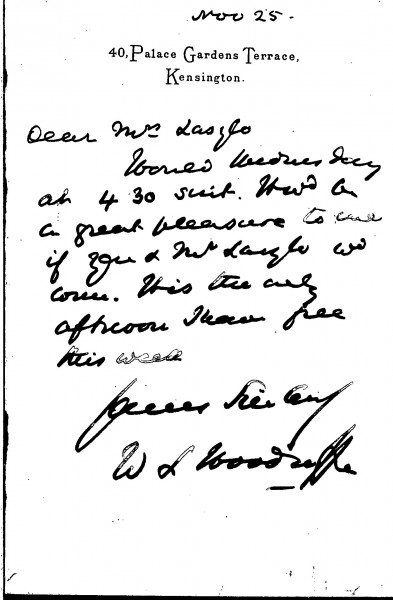 Nov 25.
40, Palace Gardens Terrace,
Kensington.
Dear Mrs Laszlo
Would Wednesday
at 4 30 suit. It wd be
a great pleasure to me
if you & Mr Laszlo wd
come. It is the only
afternoon I have free
this week
Yours Sincerely
W L Woodroffe